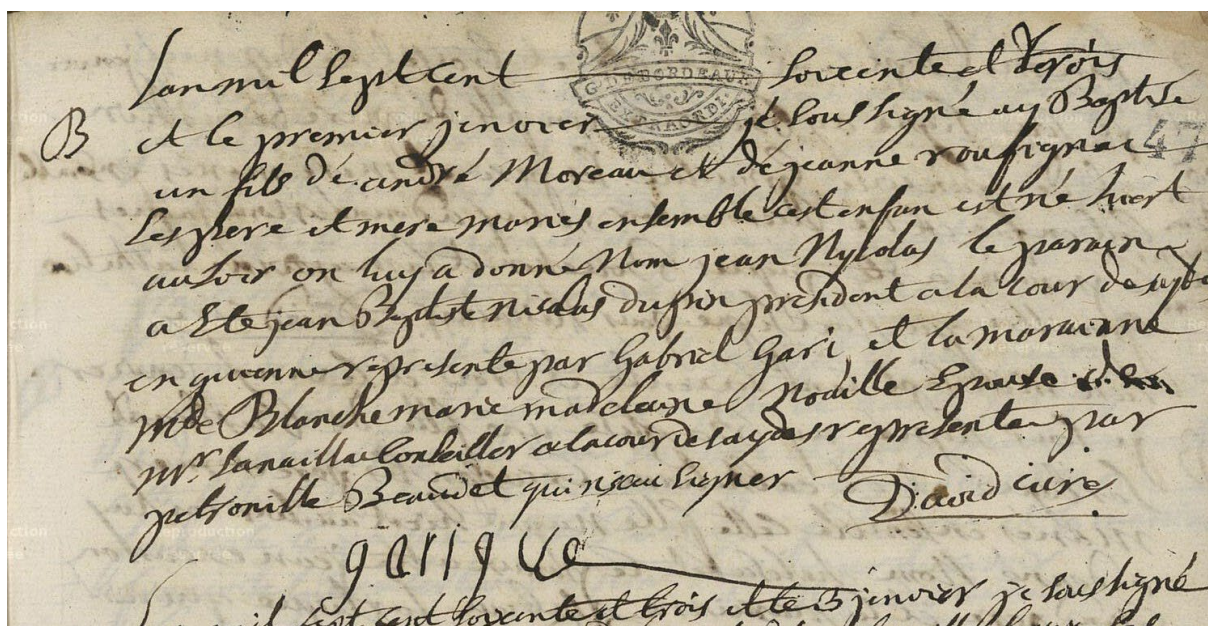 Lan mil sept cent soixente et trois
B et le premier jenvier je soussigné ay Baptise
un fils de andré Moreau et de jeanne roufignac
47
les pere et mere mariés ensemble cest enfan est né hiert
au soir on luy a donné Nom jean Nycolas le parain
a Ete jean Baptiste Nicolas dupin president a la Cour de
en guienne represente par Gabriel Gari et la maraienne
Mde Blanche marie madelaine Noaille Epouse
Mr. Conseiller a la cour des aydes represente par
petronille Beaudet qui n signer David curé
garique
sept cent soixente et trois et le 3 jenvier je soussigné
G. DE BORDEAUX
EXTRAORDI